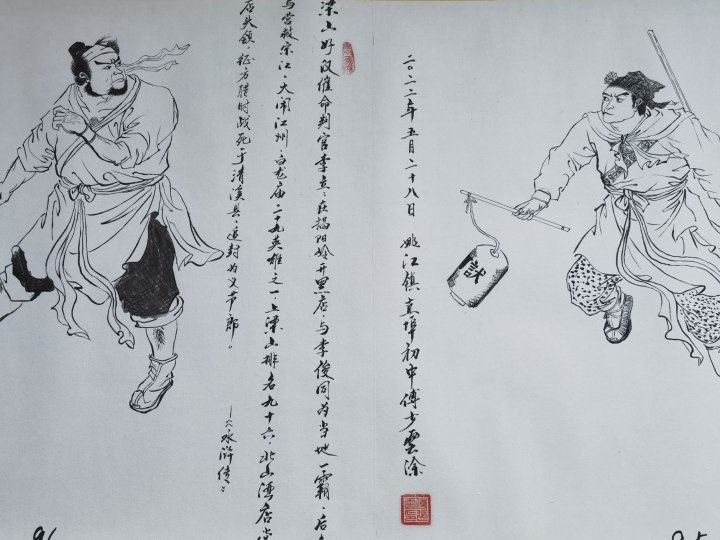 二〇二二年五月二十八日 姚江镇直埠初中傅少雲涂
梁山好汉催命判官李立,在揭阳岭开黑店,与李俊同为当地一霸。后
与营救宋江,大闹江州,白龙庙二十九英雄之一,上梁山排名九十六,北山酒店
店头领,征方腊时战死于清溪县,追封为义节郎。
——《水浒传》
96
95